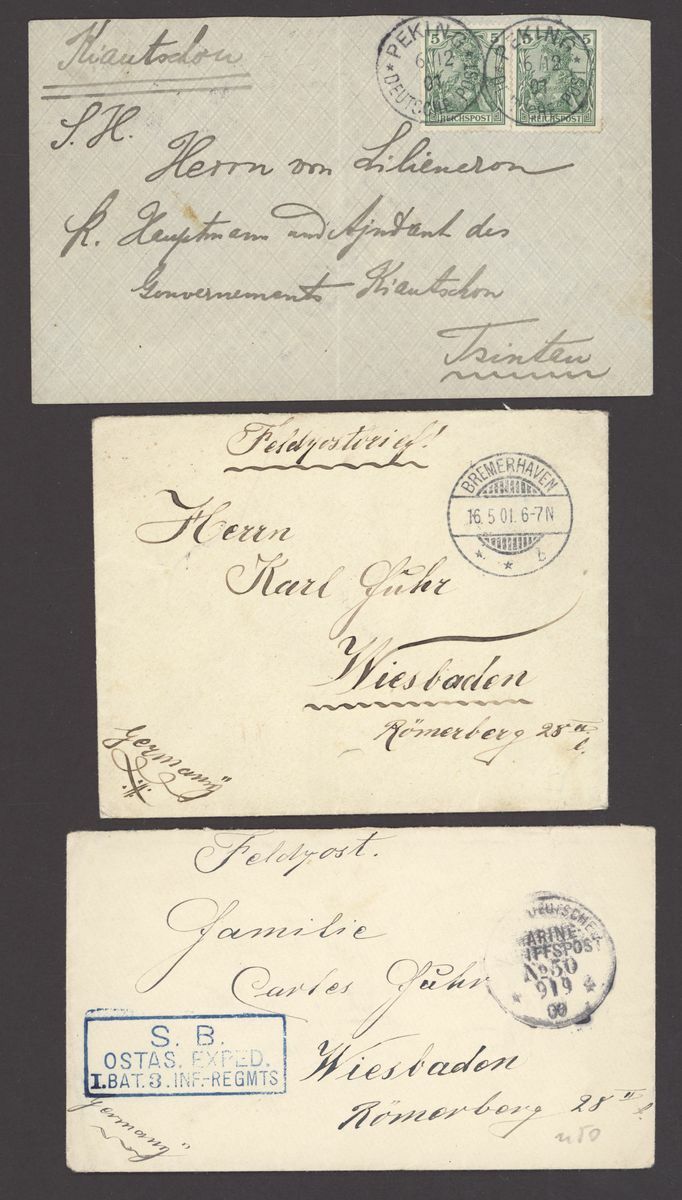 Kiautschou
PEKING
6/12
01
DEUTSCHE POST
5
REICHSPOST
PEKING
6/12
01
5 5
REICHSPOST
S. H.
Herrn von Liliencron
K. Hauptmann und Ajudant des
Gouvernements Kiautschou
Tsintau
Feldpostbrief!
BREMERHAVEN
16.5.01.6-7N
* * b
Herrn
Karl Fuhr
Wiesbaden
Römerberg 28 II l.
Germany"
Feldpost.
Familie
Carles Fuhr
Wiesbaden
Römerberg 28 II l.
Germany"
DEUTSCHE
MARINE-
SCHIFFSPOST
No 50
9/9
00
S. B.
OSTAS. EXPED.
I.BAT. 3. INF.-REGMTS